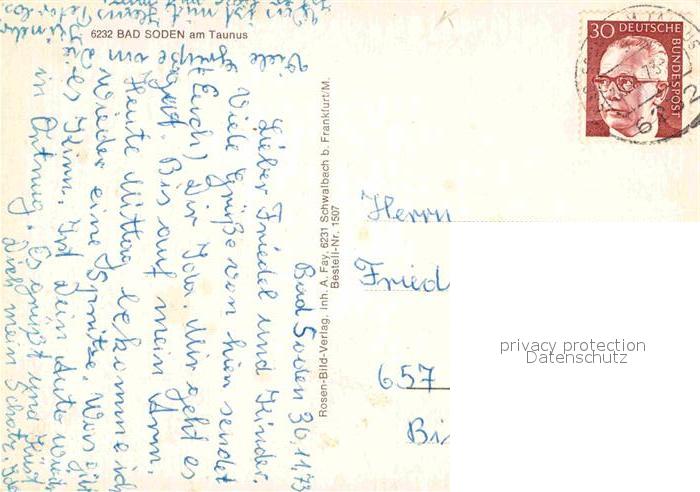 6232 BAD SODEN am Taunus
30 DEUTSCHE BUNDESPOST
Rosen-Bild-Verlag, Inh. A. Fay, 6231 Schwalbach b. Frankfurt/M.
Bestell-Nr. 1507
Bad Soden 30.11.73
Lieber Friedel und Kinder.
Viele Grüße von hier sendet
(Euch) Dir Ida. Mir geht es
gut. Bis auf mein Arm.
Heute Mittag bekomme ich
wieder eine Spritze. Was
Kinn. Ist dein Auto
in Ortnug. Es grüßt und küßt
Dich mein Schatz, Ida
Viele Grüße
Herrn
Fried
657
Bi
privacy protection
Datenschutz